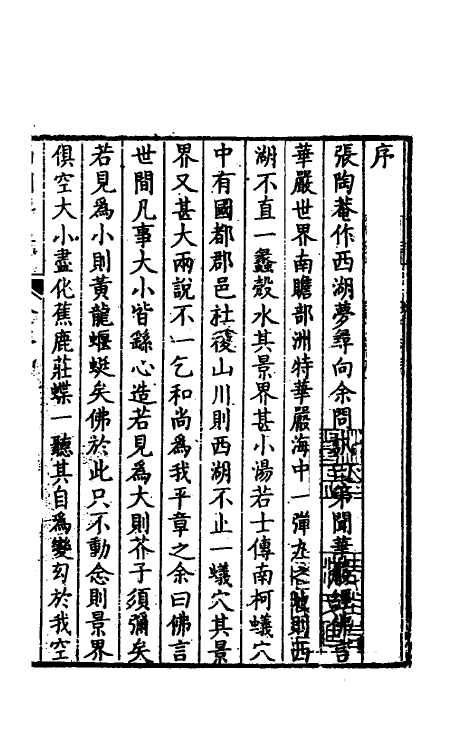 序
張陶菴作西湖夢尋向余問訊曰弟聞華嚴經佛言
華嚴世界南瞻部洲特華嚴海中一彈丸之則西
湖不直一蠡殼水其景界甚小湯若士傳南柯蟻穴
中有國都郡邑社稷山川則西湖不止一蟻穴其景
界又甚大兩說不一乞和尚為我平章之余曰佛言
世間凡事大小皆繇心造若見為大則芥子須彌矣
若見為小則黃龍蝘蜓矣佛於此只不動念則景界
俱空大小盡化蕉鹿莊蝶一聽其自為變幻於我空